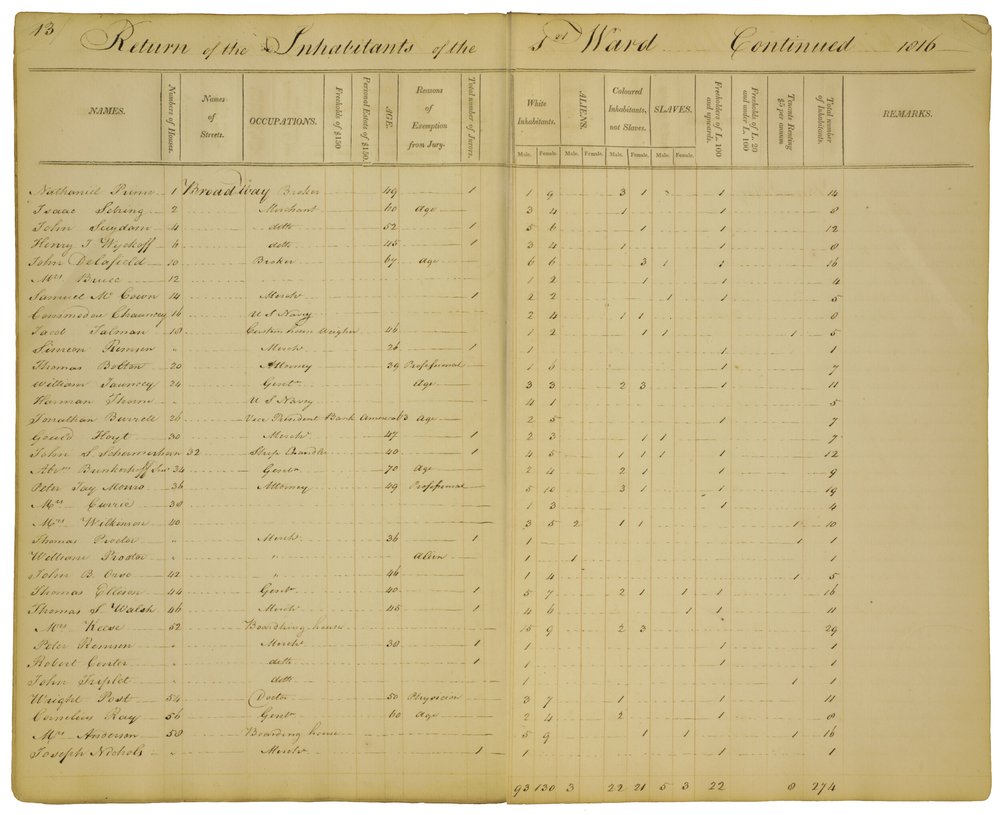 13
Return of the Inhabitants of the 1st Ward Continued 1816
NAMES. Numbers of Houses. Names of Streets. OCCUPATIONS. Freeholds of $150 Personal Estate of $150. AGE. Reasons of Exemption from Jury. Total number of Jurors. White Inhabitants. ALIENS. Coloured Inhabitants, not Slaves. SLAVES. Freeholders of L. 100 and upwards. Freeholds of L. 20 and under L. 100 Tenants Renting $5 per annum Total number of Inhabitants. REMARKS.
Male. Female. Male. Female. Male. Female. Male. Female.
Nathaniel Prime 1 Broadway Broker 49 1 1 9 3 1 1 14
Isaac Sebring 2 Merchant 60 Age 3 4 1 1 8
John Suydam 4 detto 52 1 5 6 1 1 12
Henry I Wyckoff 6 detto 45 1 3 4 1 1 8
John Delafield 10 Broker 67 Age 6 6 3 1 1 16
Mrs Bruce 12 1 2 1 1 4
Samuel Mc Cown 14 Merch 1 2 2 1 1 5
Commodou Chauncey 16 U S Navy 2 4 1 1 8
Jacob Talman 18 Custom house Weigher 46 2 1 1 1 5
Simeon Remsen " Merch 26 1 1 1 1
Thomas Bolton 20 Attorney 39 Professional 1 6 1 7
William Jauncey 24 Gent Age 3 3 2 3 1 11
Harman Thorne U S Navy 4 1 5
Jonathan Burrell 26 Vice President Bank America 63 Age 2 5 1 7
Gould Hoyt 30 Merch 47 1 2 3 1 1 7
John S Schermerhorn 32 Ship Chandler 40 1 4 5 1 1 1 1 12
Abm Brinkerhoff Junr 34 Gent 70 Age 2 4 2 1 1 9
Peter Jay Monro 36 Attorney 49 Professional 5 10 3 1 1 19
Mrs Currie 38 1 3 1 4
Mrs Wilkinson 40 3 5 2 1 1 1 10
Thomas Proctor " Merch 36 1 1 1 1
William Proctor " " Alien 1 1
John B. 42 " 46 1 4 1 5
Thomas Elleson 44 Gent 40 1 5 7 2 1 1 1 16
Thomas S. Walsh 46 Merch 45 1 4 6 1 1 11
Mrs Keese 52 Boardhing house 15 9 2 3 29
Peter Remsen " Merch 38 1 1 1 1
Robert Center " detto 1 1 1 1
John Triplet " detto 1 1 1
Wright Post 54 Doctor 50 Physician 3 7 1 1 11
Cornelius Ray 56 Gent 60 Age 2 4 2 1 8
Mrs Anderson 58 Boarding house 5 9 1 1 1 16
Joseph Nichols " Merch 1 1 1 1
93 130 3 22 21 5 3 22 8 274